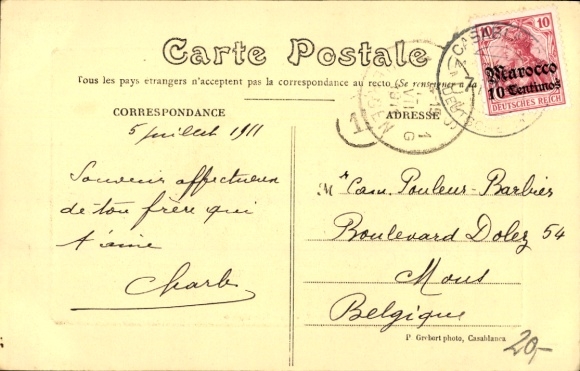 Carte Postale
Tous les pays étrangers n'acceptent pas la correspondance au recto (Se renseigner à la
CORRESPONDANCE
ADRESSE
5 juillet 1911
Souvenir affectueux
de ton frère qui
t'aime
Charles
Mr Cam. Pouleur-Barbier
Boulevard Dolez 54
Mons
Belgique
P Grebert photo, Casablanca
20,-
10
Marocco
10 Centimos
DEUTSCHES REICH
CASABLANCA
7
1